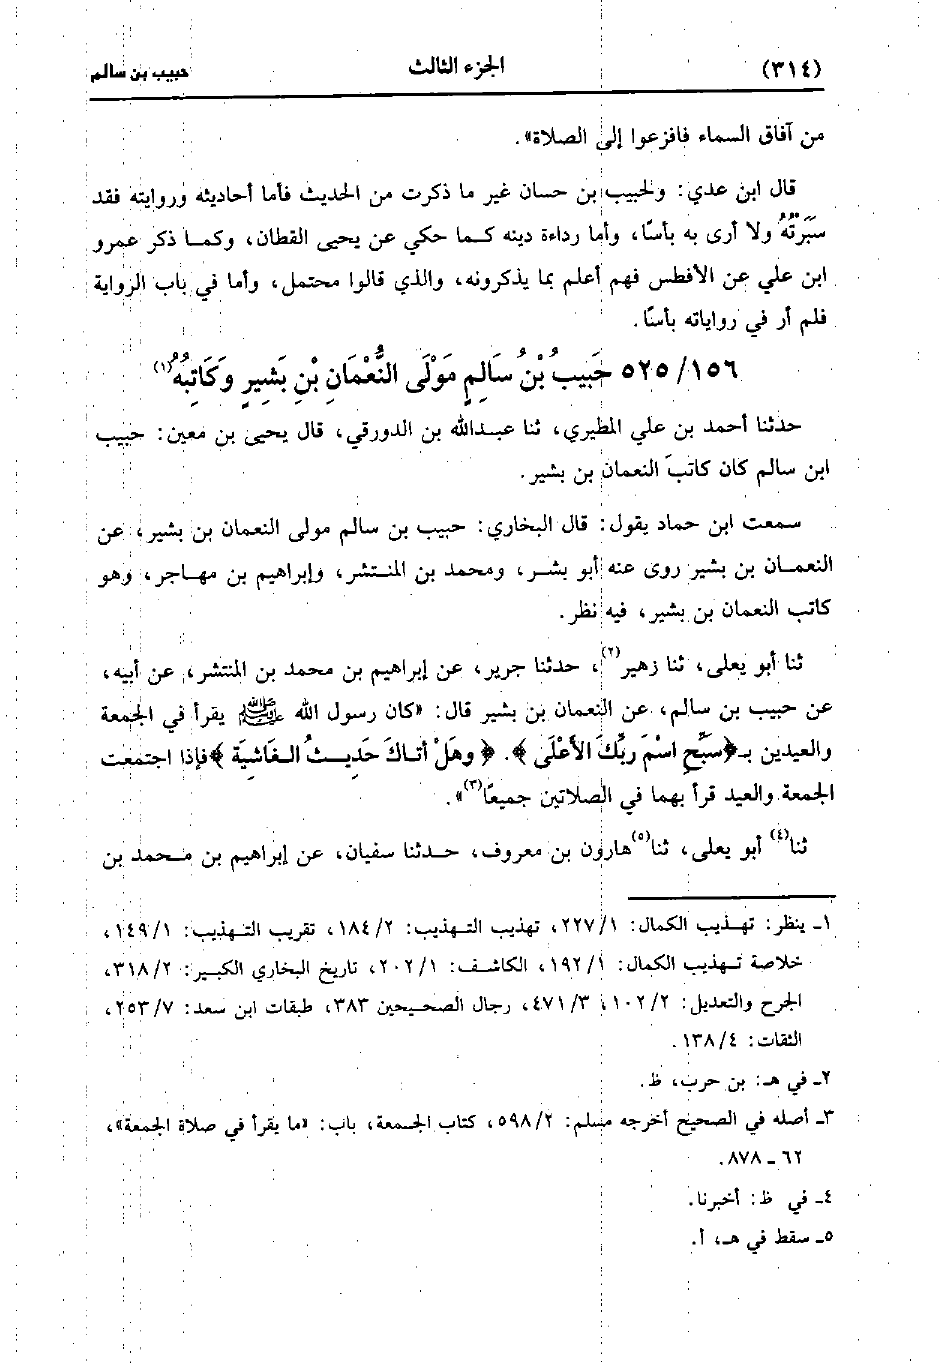 (٣١٤) الجزء الثالث حبيب بن سالم
من آفاق السماء فافزعوا إلى الصلاة».
قال ابن عدي: ولحبيب بن حسان غير ما ذكرت من الحديث فأما أحاديثه وروايته فقد
سَبَرْتُهُ ولا أرى به بأسًا، وأما رداءة دينه كما حكي عن يحيى القطان، وكما ذكر عمرو
ابن علي عن الأفطس فهم أعلم بما يذكرونه، والذي قالوا محتمل، وأما في باب الرواية
فلم أر في رواياته بأسًا.
٥٢٥/١٥٦ حَبِيبُ بْنُ سَالِمٍ مَوْلَى النُّعْمَانِ بْنِ بَشِيرٍ وَكَاتِبُهُ(١)
حدثنا أحمد بن علي المطيري، ثنا عبدالله بن الدورقي، قال يحيى بن معين: حبيب
ابن سالم كان كاتبَ النعمان بن بشير.
سمعت ابن حماد يقول: قال البخاري: حبيب بن سالم مولى النعمان بن بشير، عن
النعمان بن بشير روى عنه أبو بشر، ومحمد بن المنتشر، وإبراهيم بن مهاجر، وهو
كاتب النعمان بن بشير، فيه نظر.
ثنا أبو يعلى، ثنا زهير(٢)، حدثنا جرير، عن إبراهيم بن محمد بن المنتشر، عن أبيه،
عن حبيب بن سالم، عن النعمان بن بشير قال: «كان رسول الله ﷺ يقرأ في الجمعة
والعيدين بـ﴿سَبِّحِ اسْمَ رَبِّكَ الأَعْلَى﴾. ﴿وهَلْ أتَاكَ حَدِيثُ الغَاشِيَة﴾ فإذا اجتمعت
الجمعة والعيد قرأ بهما في الصلاتين جميعًا(٣)».
ثنا(٤) أبو يعلى، ثنا(٥) هارون بن معروف، حدثنا سفيان، عن إبراهيم بن محمد بن
١ـ ينظر: تهذيب الكمال: ٢٢٧/١، تهذيب التهذيب: ١٨٤/٢، تقريب التهذيب: ١٤٩/١،
خلاصة تهذيب الكمال: ١٩٢/١، الكاشف: ٢٠٢/١، تاريخ البخاري الكبير: ٣١٨/٢،
الجرح والتعديل: ١٠٢/٢، ٤٧١/٣، رجال الصحيحين ٣٨٣، طبقات ابن سعد: ٢٥٣/٧،
الثقات: ١٣٨/٤.
٢ـ في هـ: بن حرب، ظ.
٣ـ أصله في الصحيح أخرجه مسلم: ٥٩٨/٢، كتاب الجمعة، باب: «ما يقرأ في صلاة الجمعة»،
٦٢ ـ ٨٧٨.
٤ـ في ظ: أخبرنا.
٥ـ سقط في هـ، أ.